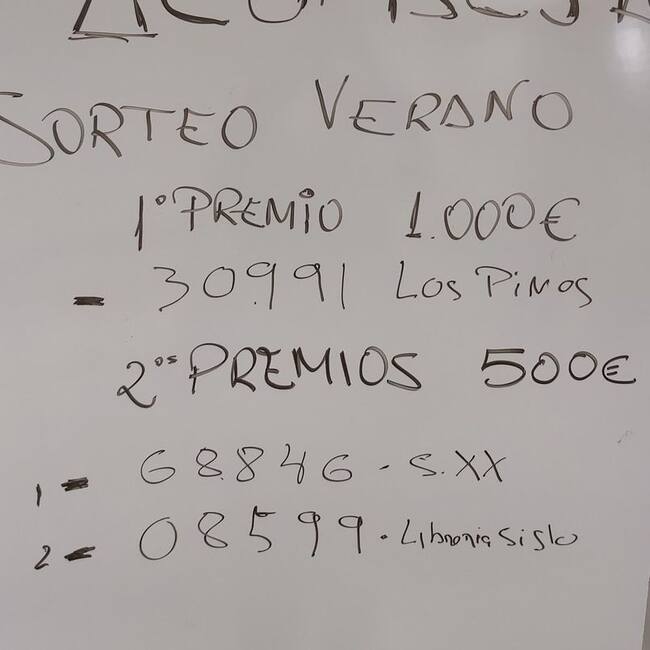 SORTEO VERANO
1º PREMIO 1.000€
- 30.991 LOS PINOS
2ºˢ PREMIOS 500€
1 - 68.846 - S.XX
2 - 08599 - Libreria Siglo